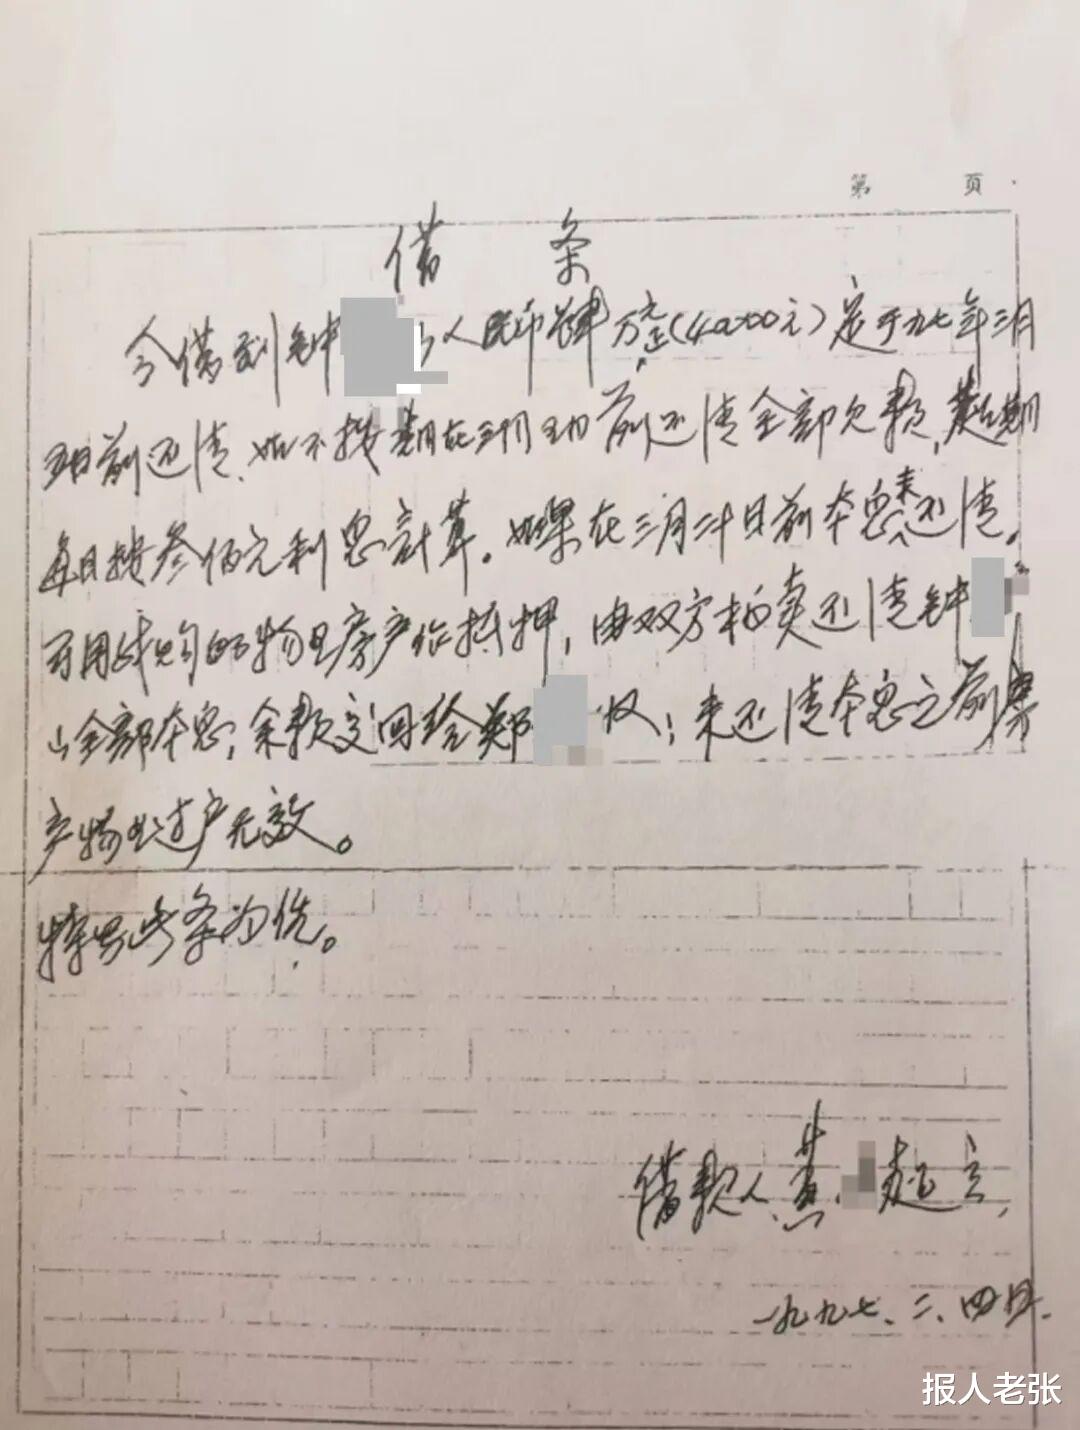 第 页
借 条
今借到钟 人民币肆万元正(40000元)定于九七年三月
五日前还清.如不按期在三月五日前还清全部欠款,超期
每日按叁佰元利息计算。如果在三月二十日前本息未还清。
可用 的物业房产作抵押,由双方拍卖还清钟
山全部本息,余款交回给郑 收;未还清本息之前房
产物业过户无效。
特写此条为凭。
借款人 黄 超立
一九九七、二、四日.
报人老张